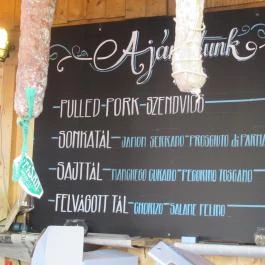 Ajánlatunk
PULLED-PORK-SZENDVICS
SONKATÁL-JAMON SERRANO-PROSCIUTO di PARMA
SAJTTÁL-MANCHEGO CURADO-PECORINO TOSCANO
FELVÁGOTT TÁL-CHORIZO-SALAME FELINO